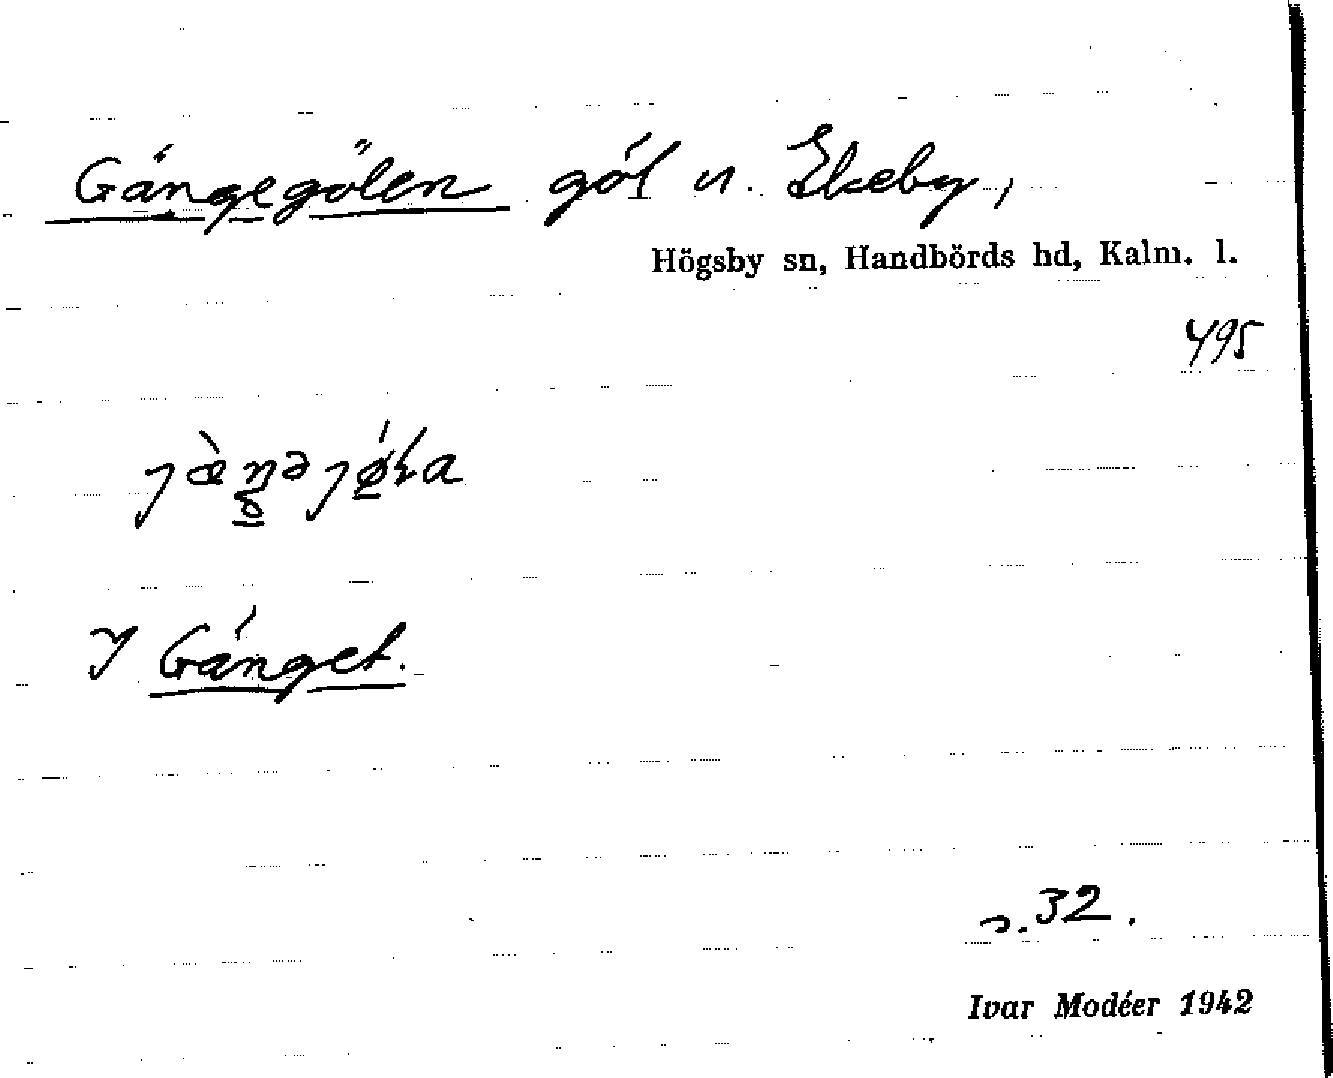 Gängegölen göl u. Ekeby,
Högsby sn, Handbörds hd, Kalm. l.
495
I Gänget.
s. 32.
Ivar Modéer 1942